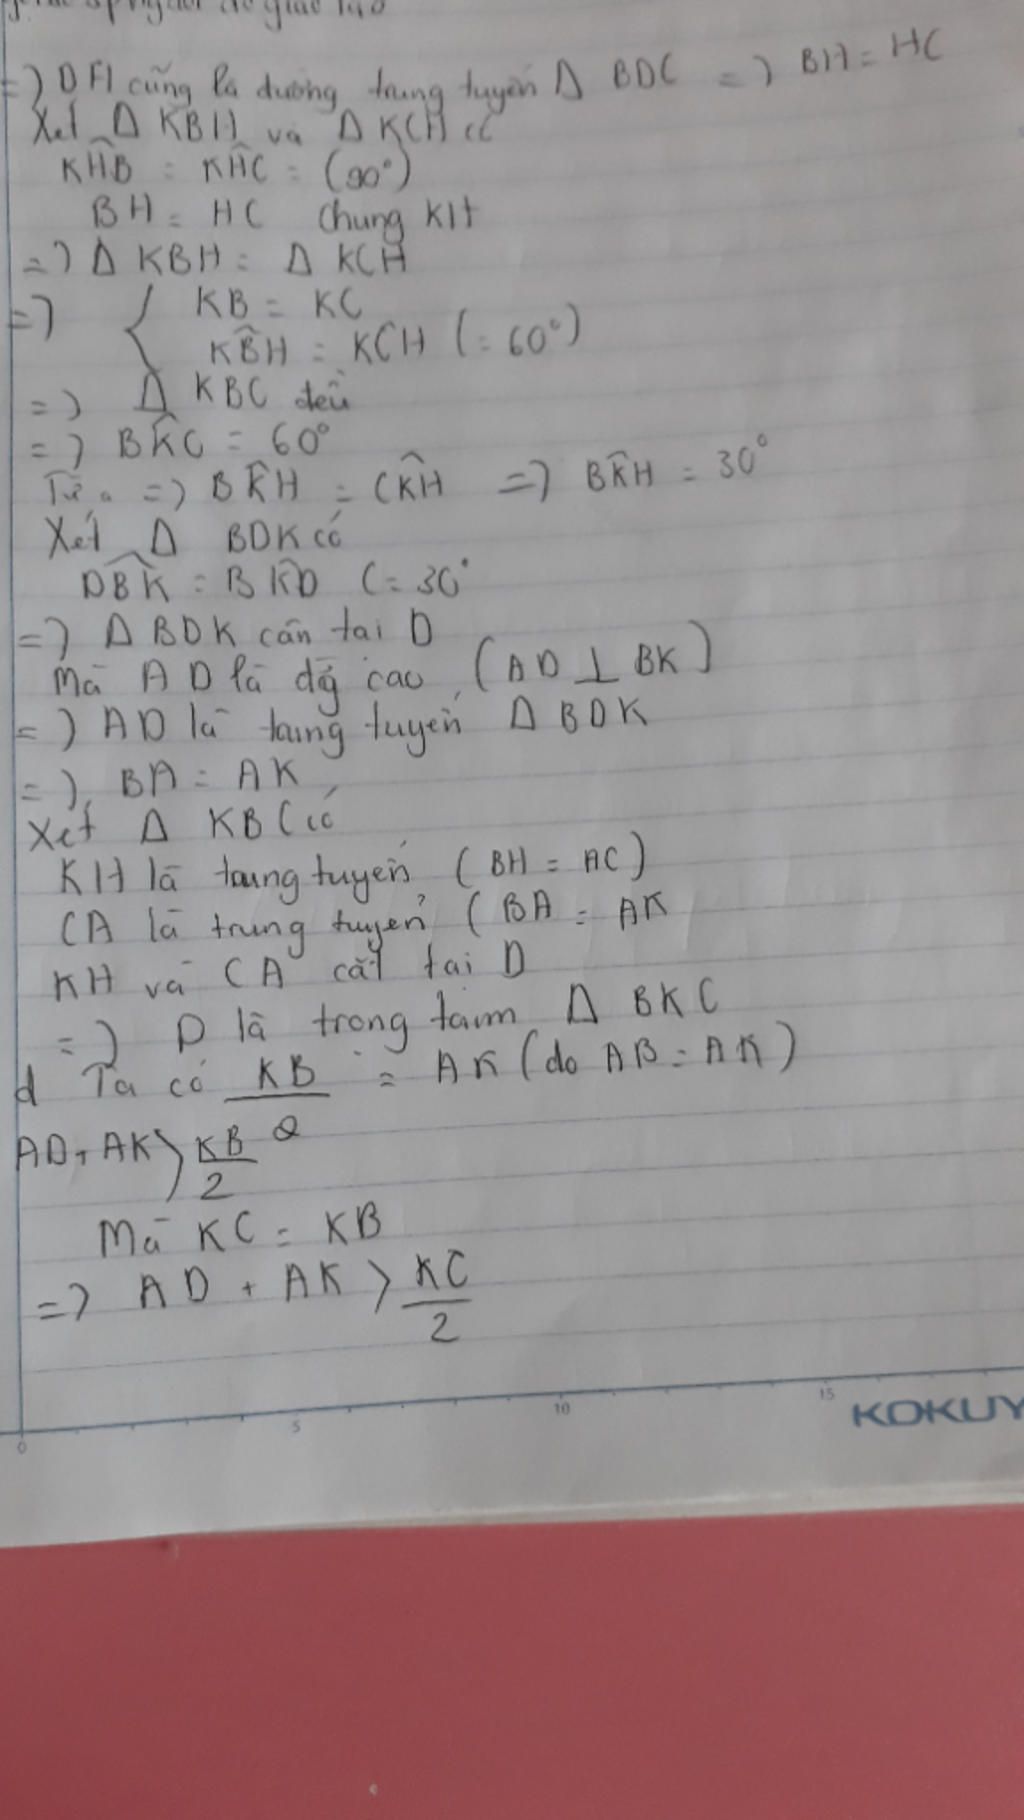 => DH cũng là đường trung tuyến Δ BDC => BH = HC
Xét Δ KBH và Δ KCH có
KĤB = KĤC = (90°)
BH = HC chung KH
=> Δ KBH = Δ KCH
=> { KB = KC
KB̂H = KCH (= 60°)
=> Δ KBC đều
=> BK̂C = 60°
Từ => BK̂H = CK̂H => BK̂H = 30°
Xét Δ BDK có
DB̂K = BK̂D (= 30°
=> Δ BDK cân tai D
Mà AD là đg cao (AD ⊥ BK)
=> AD là trung tuyến Δ BDK
=> BA = AK
Xét Δ KBC có
KH là trung tuyến (BH = AC)
CA là trung tuyến (BA = AK
KH và CA cắt tai D
=> D là trong taim Δ BKC
d Ta có KB/2 = AK (do AB = AK)
AD + AK > KB/2
Mà KC = KB
=> AD + AK > KC/2
0 5 10 15
KOKUY